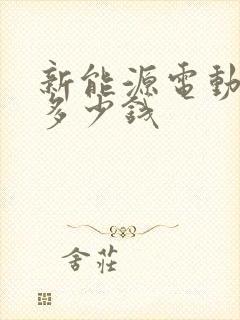 新能源電動
多少錢
舍莊